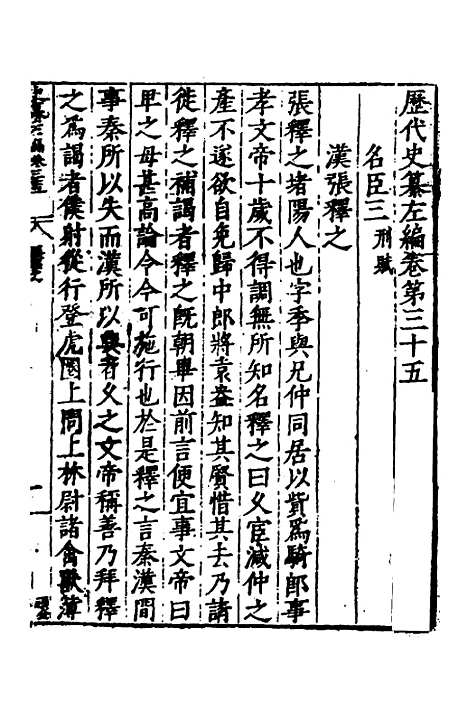 歷代史纂左編卷第三十五
名臣三 刑獄
漢張釋之
張釋之堵陽人也字季與兄仲同居以貲爲騎郎事
孝文帝十歲不得調無所知名釋之曰乆宦減仲之
產不遂欲自免歸中郎將袁盎知其賢惜其去乃請
徙釋之補謁者釋之旣朝畢因前言便宜事文帝曰
卑之毋甚高論令今可施行也於是釋之言秦漢間
事秦所以失而漢所以興者乆之文帝稱善乃拜釋
之爲謁者僕射從行登虎圈上問上林尉諸禽獸簿